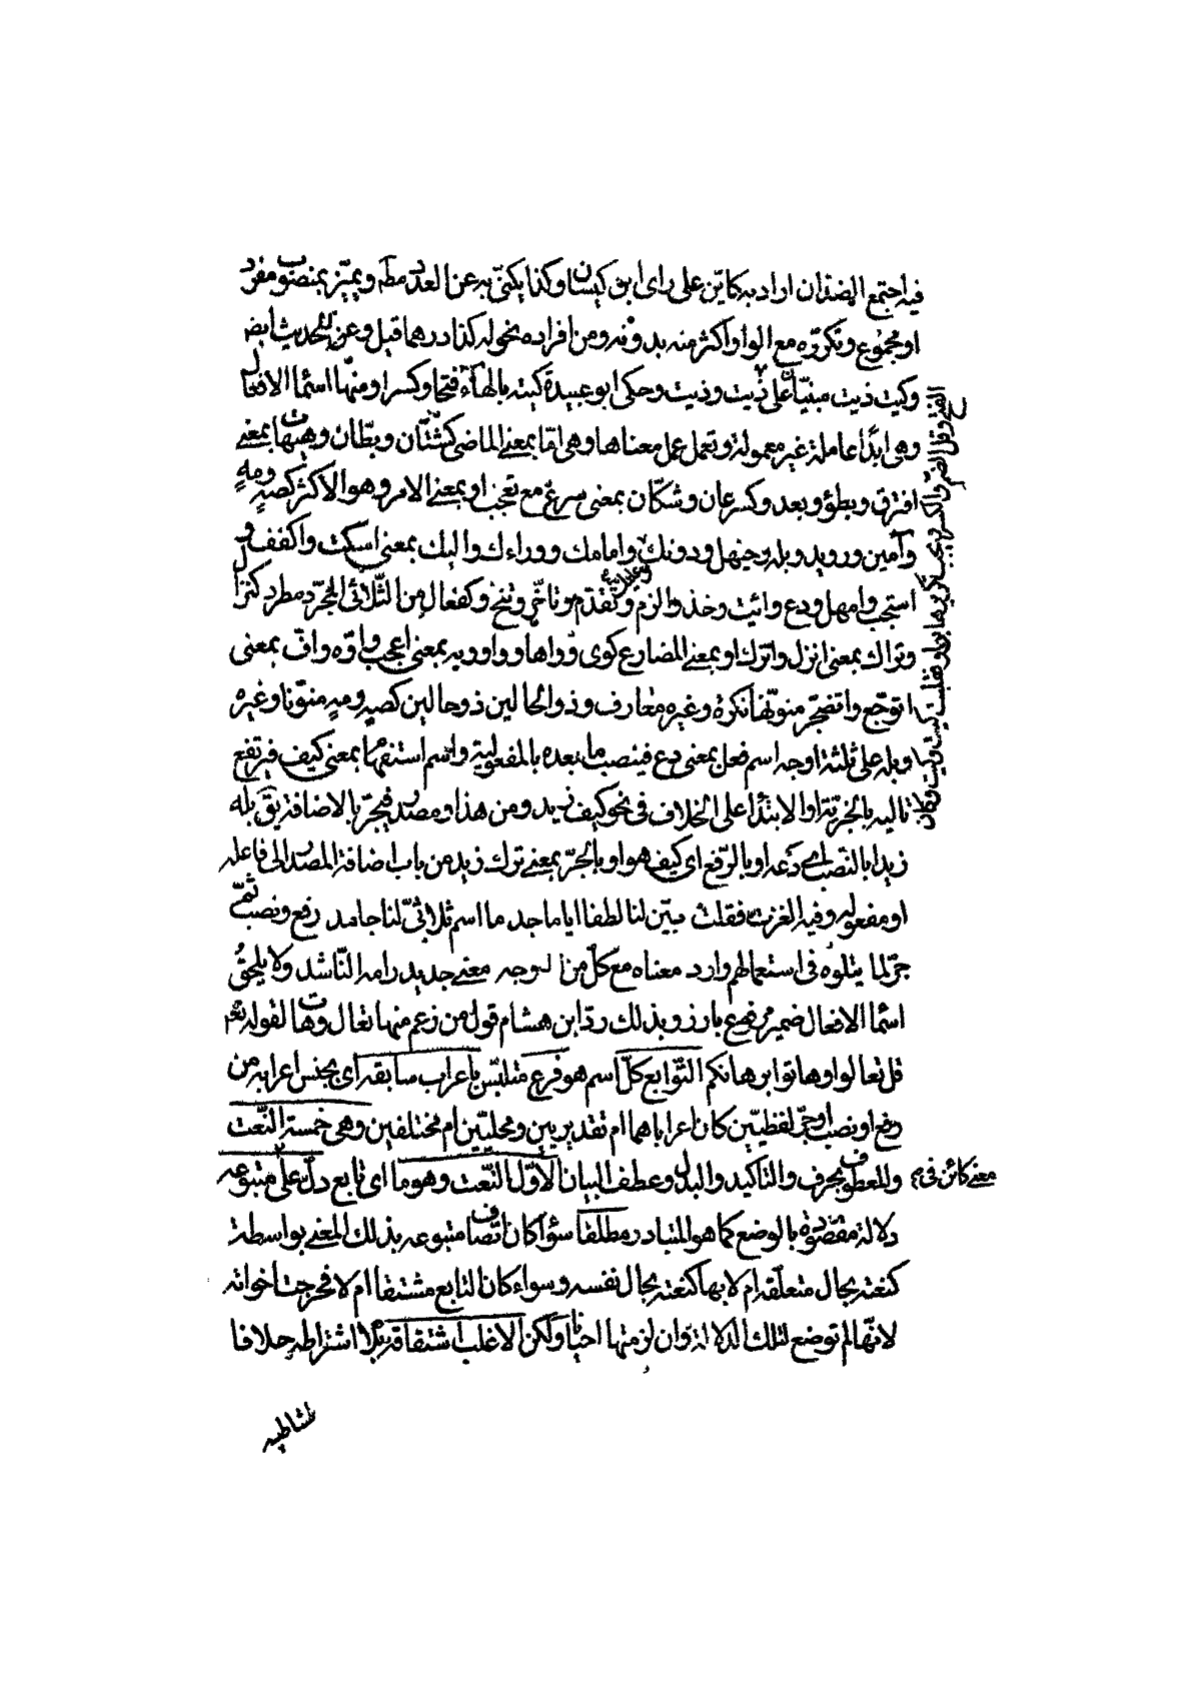 فيه اجتمع الضدان اراد به كاين على راى ابن كيسان وكذا يكنى به عن العدد مطه ويميز بمنصوب مفرد
او مجموع وتكرره مع الواو اكثر منه بدونه ومن افراده نحو له كذا درهما قيل وعن الحديث ايض
وكيت ذيت مبنيان على ذيت وذيت وحكى ابو عبيدة كيته بالهاء فتحا وكسرا ومنها اسماء الافعال
وهى ابدا عاملة غير معمولة وتعمل عمل معناها وهى اما بمعنى الماضى كشتان وبطان وهيهات بمعنى
افترق وبطؤ وبعد وكسرعان وشكان بمعنى سرع مع تعجب او بمعنى الامر وهو الاكثر كصه ومه
وآمين ورويد وبله وحيهل ودونك وامامك ووراءك واليك بمعنى اسكت واكفف و
استجب وامهل ودع وائت وخذ والزم وتقدم وتأخر وتنح وكفعال من الثلاثى المجرد مطرد كنزال
وتراك بمعنى انزل واترك او بمعنى المضارع كوى وواها وواويه بمعنى اعجب واوه واف بمعنى
اتوجع واتضجر منونها نكرة وغيره معارف وذو الحالين ذو حالين كصه ومه منونا وغيره
وبله على ثلثة اوجه اسم فعل بمعنى دع فينصب ما بعده بالمفعولية واسم استفهام بمعنى كيف فيرتفع
تاليه بالخبرية او الابتداء على الخلاف فى نحو كيف زيد ومن هذا ومصدر فيجر بالاضافة يق بله
زيدا بالنصب اى دعه او بالرفع اى كيف هو او بالجر بمعنى ترك زيد من باب اضافة المصدر الى فاعله
او مفعوله وفيه الغزت فقلت مبين لنا لطفا ايا ماجد ما اسم ثلاثى لنا جامد رفع ونصب ثم
جر لما يتلوه فى استعمالهم وارد معناه مع كل من الوجه معنى جديد رامه الناشد ولا يلحق
اسماء الافعال ضمير مرفوع بارز وبذلك رد ابن هشام قول من زعم منها تعال وهات لقوله تعم
قل تعالوا وهاتوا برهانكم التوابع كل اسم هو فرع متلبس باعراب سابقه اى بجنس اعرابه من
رفع او نصب او جر لفظيين كان اعراباهما ام تقديريين ومحليين ام مختلفين وهى خمسة النعت
والمعطوف بحرف والتاكيد والبدل وعطف البيان الاول النعت وهو ما اى تابع دل على متبوعه
معنى كائن فى
دلالة مقصودة بالوضع كما هو المتبادر مطلقا سواء كان اتصاف متبوعه بذلك المعنى بواسطة
كنعته بحال متعلقه ام لا بها كنعته بحال نفسه وسواء كان التابع مشتقا ام لا فخرجت اخواته
لانها لم توضع لتلك الدلالة وان لزمتها احيانا ولكن الاغلب اشتقاقه بلا اشتراطه خلافا